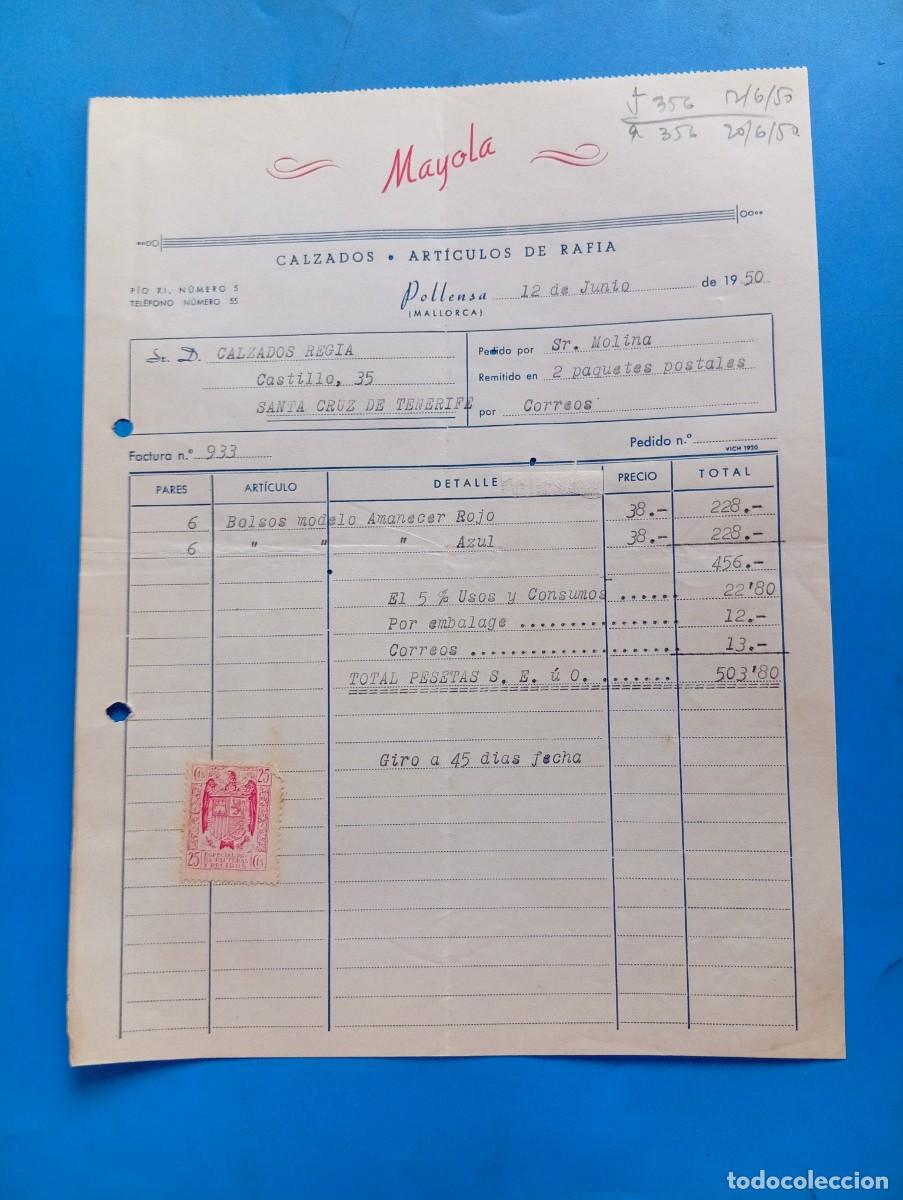 356 12/6/50
356 20/6/50
Mayola
CALZADOS • ARTÍCULOS DE RAFIA
PÍO XI, NÚMERO 5
TELÉFONO NÚMERO 55
Pollensa 12 de Junio de 1950
(MALLORCA)
Sr. D. CALZADOS REGIA
Castillo, 35
SANTA CRUZ DE TENERIFE
Pedido por Sr. Molina
Remitido en 2 paquetes postales
por Correos
Factura n.º 933
Pedido n.º
VICH 1920
PARES ARTÍCULO DETALLE PRECIO TOTAL
6 Bolsos modelo Amanecer Rojo 38.- 228.-
6 " " " Azul 38.- 228.-
456.-
El 5 % Usos y Consumos ...... 22'80
Por embalage ................ 12.-
Correos ..................... 13.-
TOTAL PESETAS S. E. ú O. ....... 503'80
Giro a 45 dias fecha
Cts 25
25 Cts
ESPECIAL PA-
RA FACTURAS
Y RECIBOS
todocoleccion